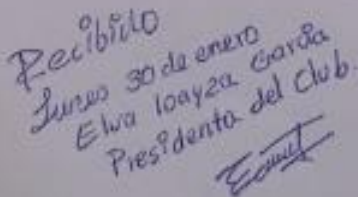 Recibido
Lunes 30 de enero
Elva loayza García
Presidenta del Club.